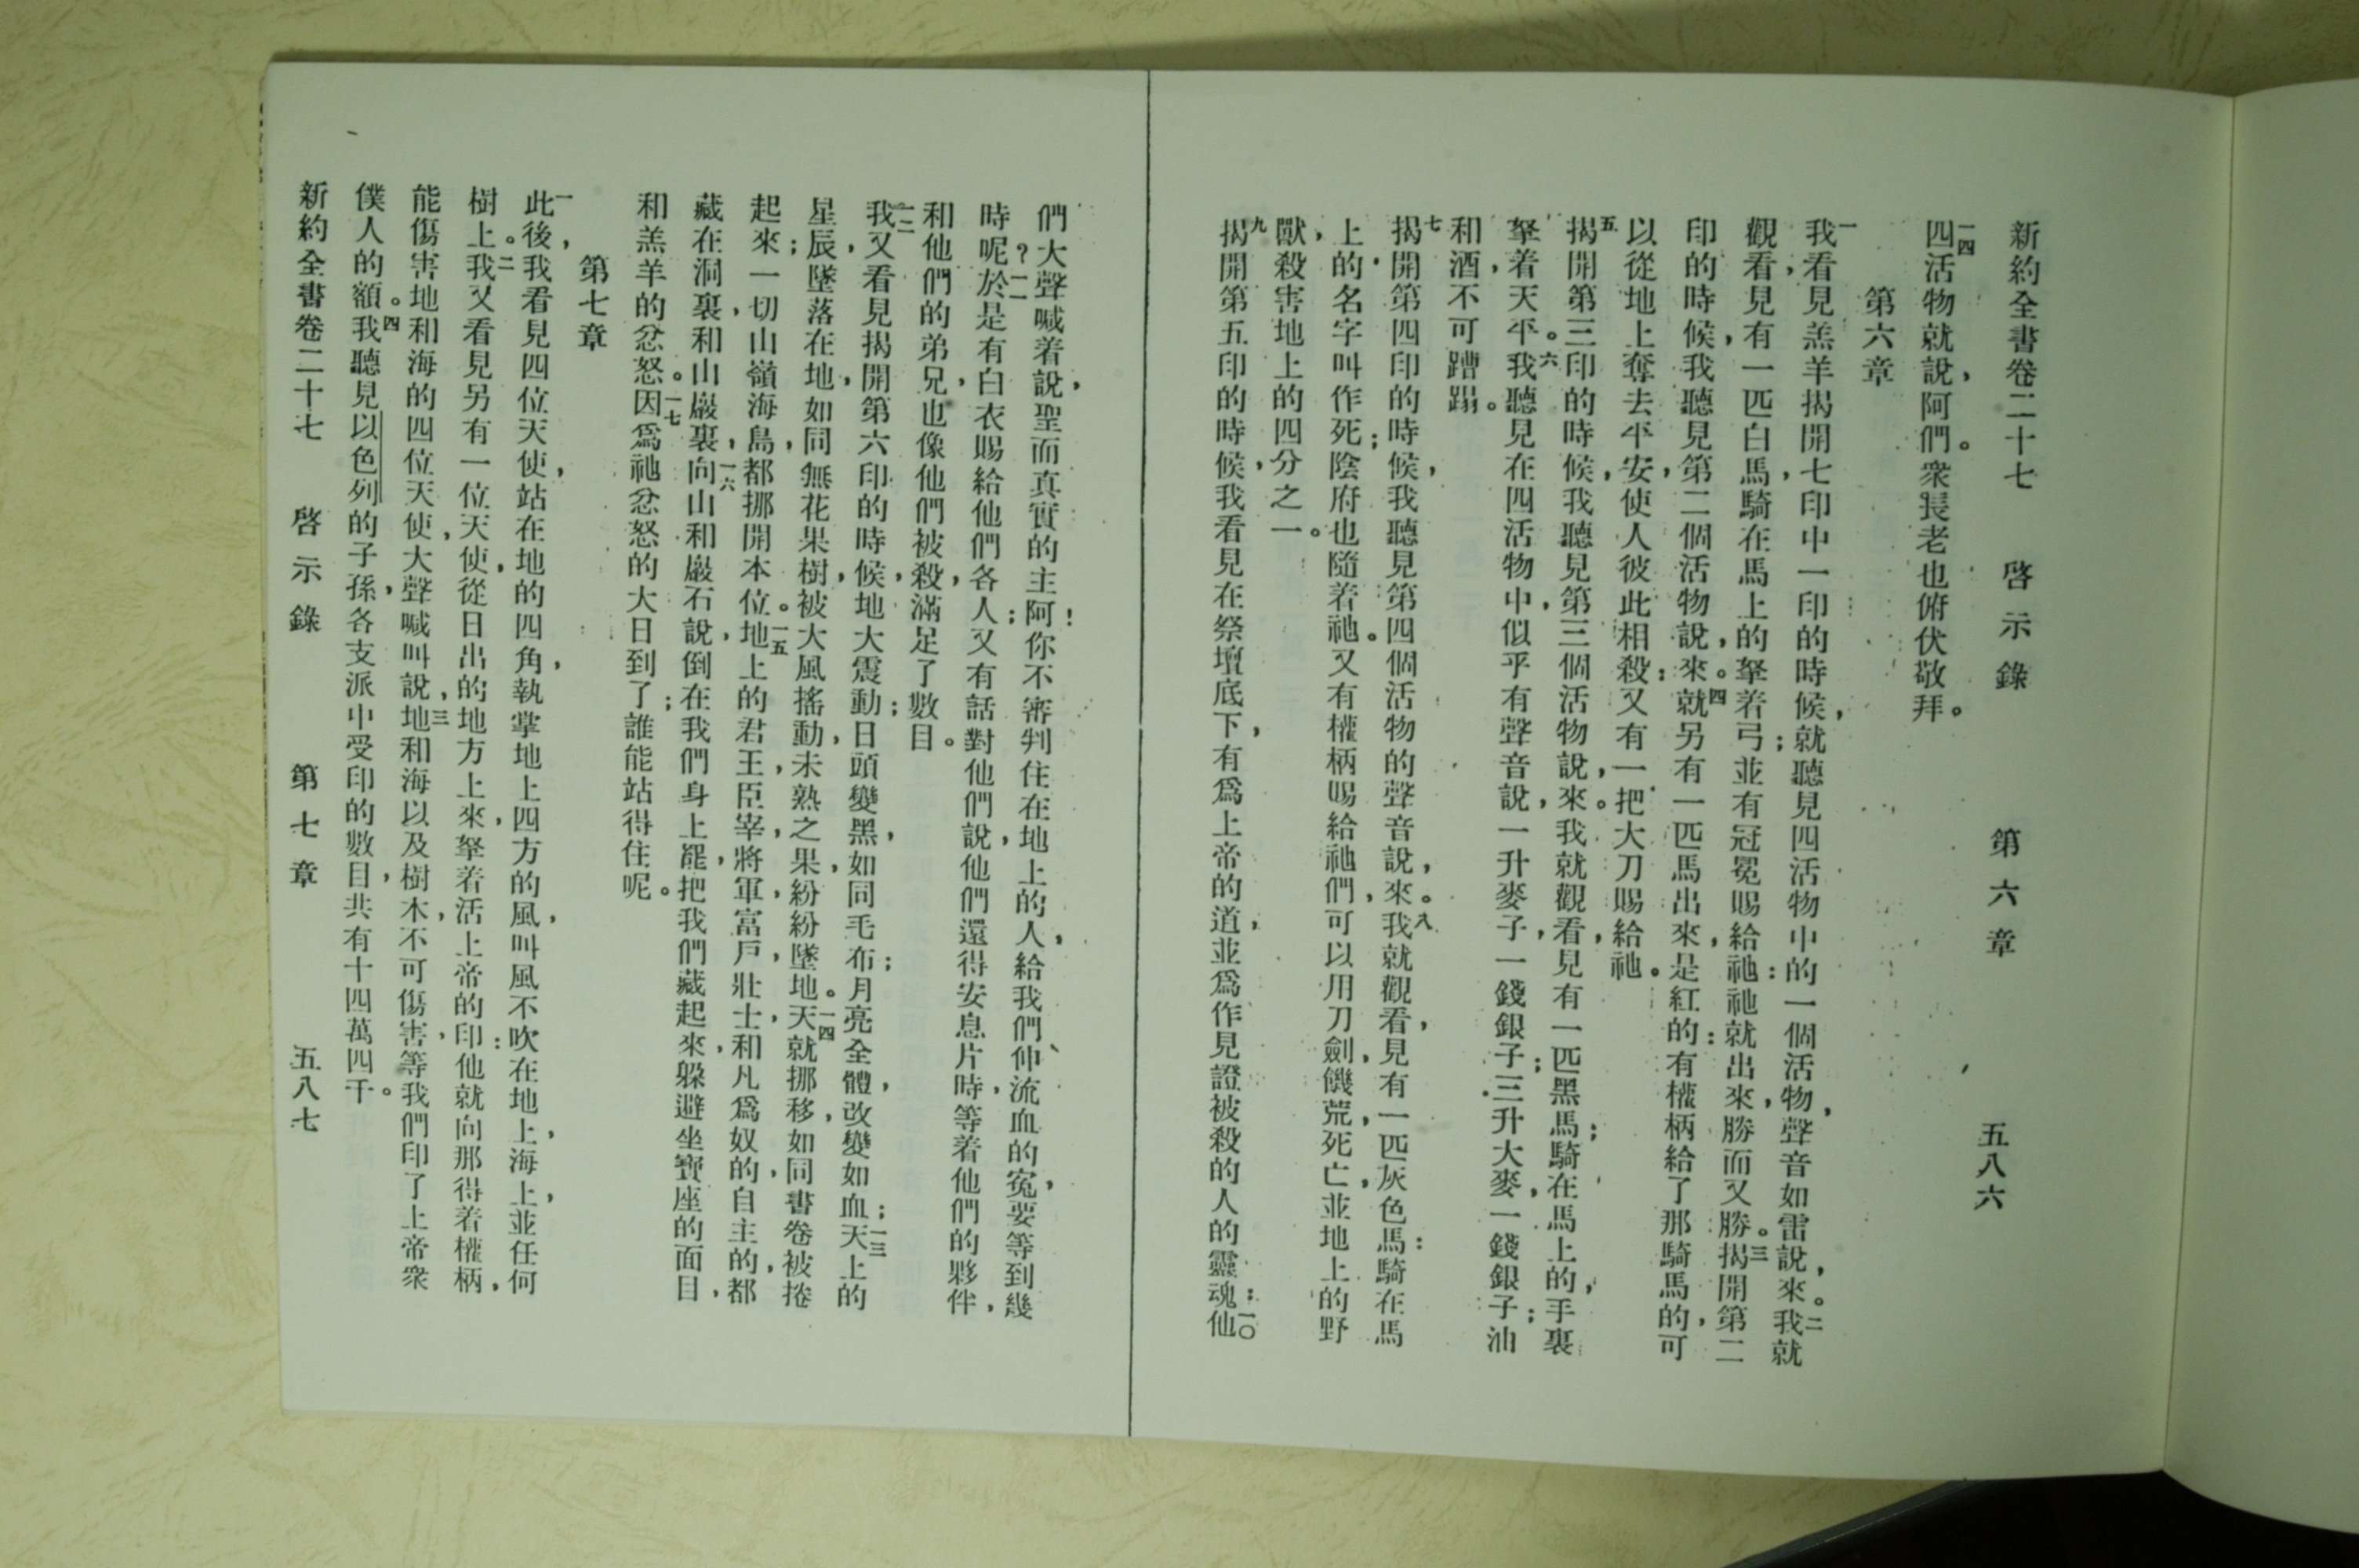 新約全書卷二十七　啓示錄　第六章　五八六
一四四活物就說，阿們。衆長老也俯伏敬拜。
第六章
一我看見羔羊揭開七印中一印的時候，就聽見四活物中的一個活物，聲音如雷說，來。二我就
觀看，見有一匹白馬，騎在馬上的拏着弓；並有冠冕賜給祂：祂就出來，勝而又勝。三揭開第二
印的時候，我聽見第二個活物說，來。四就另有一匹馬出來，是紅的：有權柄給了那騎馬的，可
以從地上奪去平安，使人彼此相殺：又有一把大刀賜給祂。
五揭開第三印的時候，我聽見第三個活物說，來。我就觀看，見有一匹黑馬；騎在馬上的，手裏
拏着天平。六我聽見在四活物中，似乎有聲音說，一升麥子，一錢銀子；三升大麥，一錢銀子；油
和酒，不可蹧蹋。
七揭開第四印的時候，我聽見第四個活物的聲音說，來。八我就觀看，見有一匹灰色馬：騎在馬
上的，名字叫作死；陰府也隨着祂。又有權柄賜給祂們，可以用刀劍，饑荒，死亡，並地上的野
獸，殺害地上的四分之一。
九揭開第五印的時候，我看見在祭壇底下，有爲上帝的道，並爲作見證被殺的人的靈魂：一〇他
們大聲喊着說，聖而真實的主阿！你不審判住在地上的人，給我們伸流血的寃，要等到幾
時呢？一一於是有白衣賜給他們各人；又有話對他們說，他們還得安息片時，等着他們的夥伴，
和他們的弟兄，也像他們被殺，滿足了數目。
一二我又看見揭開第六印的時候，地大震動；日頭變黑，如同毛布；月亮全體改變，如血；一三天上的
星辰，墜落在地，如同無花果樹，被大風搖動，未熟之果，紛紛墜地。一四天就挪移，如同書卷被捲
起來；一切山嶺海島，都挪開本位。一五地上的君王，臣宰，將軍，富戶，壯士，和凡爲奴的，自主的，都
藏在洞裏，和山巖裏，一六向山和巖石說，倒在我們身上罷，把我們藏起來，躱避坐寶座的面目，
和羔羊的忿怒。一七因爲祂忿怒的大日到了；誰能站得住呢。
第七章
一此後，我看見四位天使，站在地的四角，執掌地上四方的風，叫風不吹在地上，海上，並任何
樹上。二我又看見另有一位天使，從日出的地方上來，拏着活上帝的印：他就向那得着權柄，
能傷害地和海的四位天使，大聲喊叫說，三地和海以及樹木，不可傷害，等我們印了上帝衆
僕人的額。四我聽見以色列的子孫，各支派中受印的數目，共有十四萬四千。
新約全書卷二十七　啓示錄　第七章　五八七